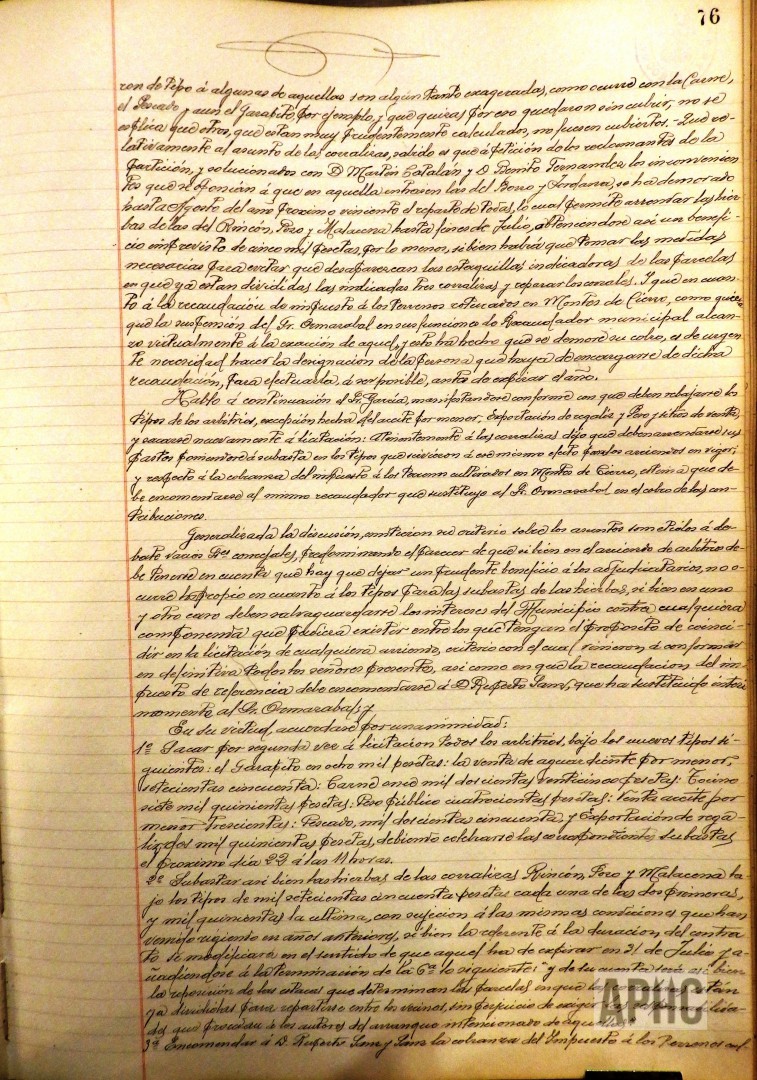 76
ron de tipo á algunas de aquellas son algún tanto exageradas, como ocurre con la Carne,
el Pescado y aun el Garapito, por ejemplo, y que quizás por eso quedaron sin cubrir, no se
esplica que otros, que estan muy prudentemente calculados, no fuesen cubiertos. Que re-
lativamente al asunto de las corralizas, sabido es que á petición de los reclamantes de la
partición, y solucionados con D Martín Catalán y D. Benito Fernandez los inconvenien
tes que se oponian á que en aquella entrasen las del Boso y Tordanza, se ha demorado
hasta Agosto del año proximo viniente el reparto de todas, lo cual permite arrendar las hier
bas de las del Rincón, Pozo y Malacena hasta fines de Julio, obteniendose asi un benefi-
cio imprevisto de cinco mil pesetas, por lo menos, si bien habrá que tomar las medidas
necesarias para evitar que desaparezcan las estaquillas indicadoras de las parcelas
en que yá estan divididas las indicadas tres corralizas y reparar los corrales. Y que en cuan-
to á la recaudación de impuesto á los terrenos roturados en Montes de Cierzo, como quie-
que la suspensión del Sr. Ormazabal en sus funciones de Recaudador municipal alcan-
zo virtualmente á la exacción de aquel, y esto ha hecho que se demore su cobro, es de urgen
te necesidad hacer la designación de la persona que haya de encargarse de dicha
recaudación, para efectuarla, á ser posible, antes de expirar el año.
Habló á continuación el Sr. García, manifestandose conforme con que deben rebajarse los
tipos de los arbitrios, excepción hecha del aceite por menor, Exportación de regaliz y Peso y sitios de venta,
y sacarse nuevamente á licitación: Atinentemente á las corralizas dijo que deben arrendarse sus
pastos poniendose á subasta en los tipos que sirvieron á ese mismo efecto para los arriendos en vigor;
y respecto á la cobranza del impuesto á los terrenos cultivados en Montes de Cierzo, estima que de-
be encomendarse al mismo recaudador que sustituye al Sr. Ormazabal en el cobro de las con-
tribuciones.
Generalizada la discusión, emitieron su criterio sobre los asuntos sometidos á de-
bate varios Sres concejales, predominando el parecer de que si bien en el arriendo de arbitrios de-
be tenerse en cuenta que hay que dejar un prudente beneficio á los adjudicatarios, no o-
curre lo propio en cuanto á los tipos para las subastas de las hierbas, si bien en uno
y otro caso deben salvaguardarse los intereses del Municipio contra cualquiera
componenda que pudiera existir entre los que tengan el proposito de coinci-
dir en la licitación de cualquiera arriendo, criterio con el cual vinieron á conformar
en definitiva todos los señores presentes, asi como en que la recaudacion del im-
puesto de referencia debe encomendarse á D Ruperto Sanz, que ha sustituido interi
namente al Sr. Ormazabal; y
En su virtud, acuerdase por unanimidad:
1º Sacar por segunda vez á licitacion todos los arbitrios, bajo los nuevos tipos si-
guientes: el Garapito en ocho mil pesetas: la venta de aguardiente por menor,
setecientas cincuenta: Carne once mil doscientas veinticinco pesetas: Tocino
siete mil quinientas pesetas: Peso público cuatrocientas pesetas: Venta aceite por
menor Trescientas: Pescado, mil doscientas cincuenta, y Exportación de rega-
liz dos mil quinientas pesetas, debiendo celebrarse las correspondientes subastas
el proximo dia 22 á las 11 horas.
2º Subastar asi bien las hierbas de las corralizas Rincón, Pozo y Malacena ba-
jo los tipos de mil setecientas cincuenta pesetas cada una de las dos primeras,
y mil quinientas la ultima, con sujecion á las mismas condiciones que han
venido rigiendo en años anteriores, si bien la referente á la duracion del contra
to se modificará en el sentido de que aquel ha de expirar en 31 de Julio y a-
ñadiéndose á la terminación de la 6ª lo siguiente: "y de su cuenta será asi bien
la reposición de las estacas que determinan las parcelas en que las corralizas están
ya divididas para repartirse entre los vecinos, sin perjuicio de exigir las responsabilida-
des que procedan á los autores del arranque intencionado de aquellas"
3º Encomendar á D. Ruperto Sanz y Sanz la cobranza del Impuesto á los terrenos cul-
APHC